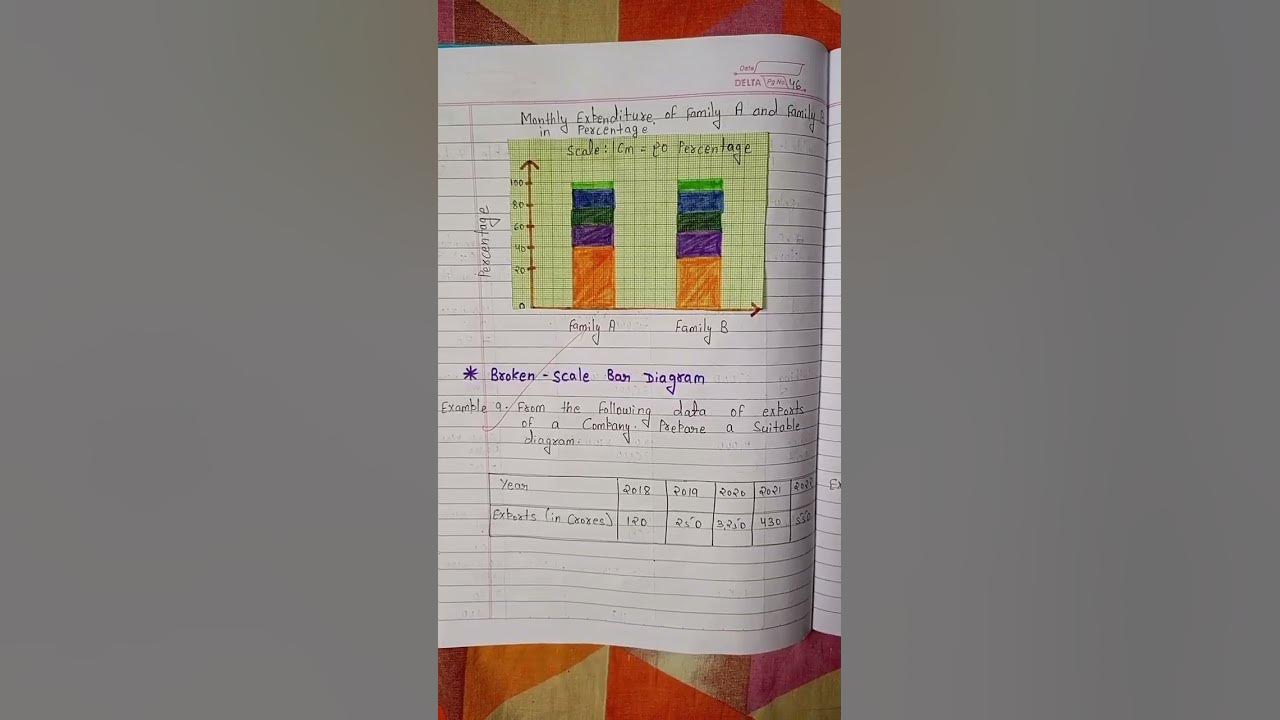 Date
DELTA Pg No 46
Monthly Expenditure of Family A and Family B
in Percentage
Scale: 1cm = 20 Percentage
100
80
60
40
20
0
Percentage
Family A Family B
* Broken-Scale Bar Diagram
Example 9. From the following data of exports
of a Company. Prepare a Suitable
diagram.
Year 2018 2019 2020 2021 2022
Exports (in Crores) 120 250 3,250 430 550
Ex